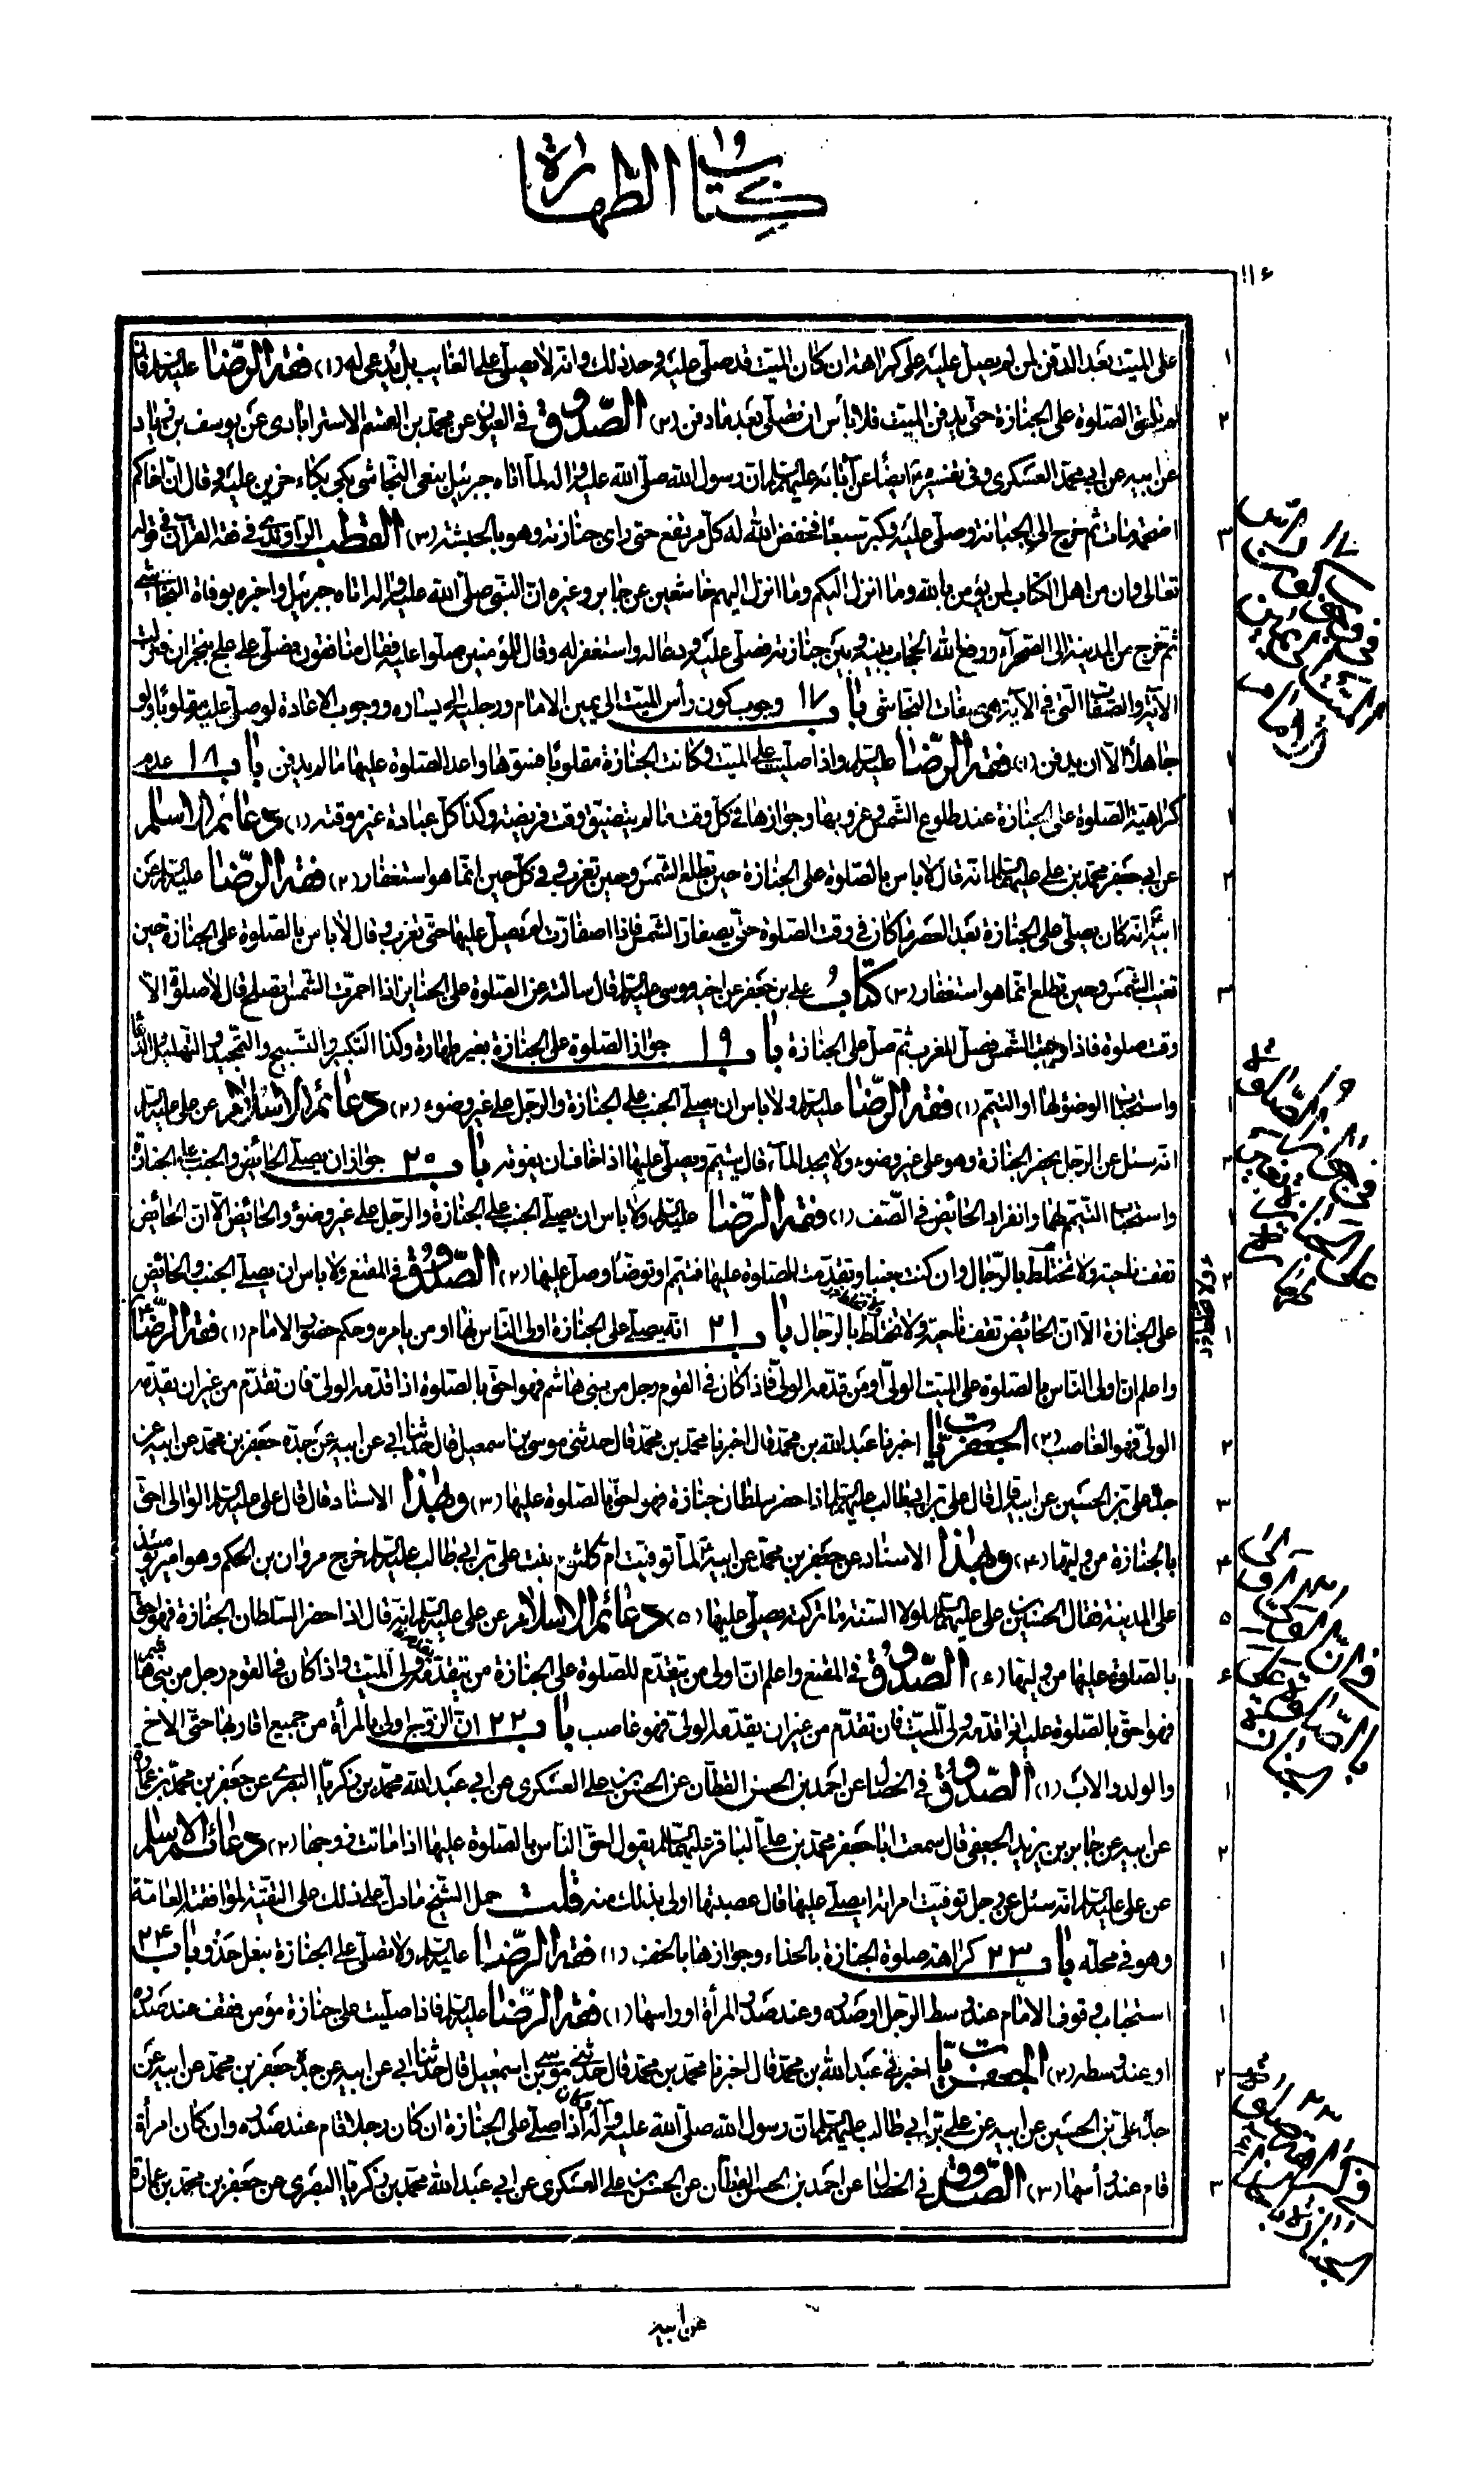 كتاب الطهارة
١١٦
على الميت بعد الدفن لمن لم يصل عليه على كراهة ان كان الميت قد صلى عليه وحد ذلك وانه لا يصلى على الغايب بل يدعى له (١) فقه الرضا عليه السلام فان
لم تلحق الصلوة على الجنازة حتى يدفن الميت فلا باس ان تصلى بعد ما دفن (٢) الصدوق في العيون عن محمد بن القسم الاسترابادى عن يوسف بن زياد
عن ابيه عن ابي محمد العسكرى وفى تفسيره ايضًا عن آبائه عليهم السلام ان رسول الله صلى الله عليه واله لما اتاه جبرئيل بنعى النجاشى بكى بكاء حزين عليه وقال ان اخاكم
اضحمة مات ثم خرج الى الجبانة وصلى عليه وكبر سبعًا فخفض الله له كل مرتفع حتى راى جنازته وهو بالحبشة (٣) القطب الراوندى في فقه القرآن في قوله
تعالى وان من اهل الكتاب لمن يؤمن بالله وما انزل اليكم وما انزل اليهم خاشعين عن جابر وغيره ان النبى صلى الله عليه واله اتاه جبرئيل واخبره بوفاة النجاشى
ثم خرج من المدينة الى الصحراء ورفع الله الحجاب بينه وبين جنازته فصلى عليه ودعا له واستغفر له وقال للمؤمنين صلوا عليه فقال منافقون نصلى على علج بنجران فنزلت
الآية والصفات التى في الآية هى صفات النجاشى باب ١٧ وجوب كون رأس الميت الى يمين الامام ورجليه الى يساره ووجوب الاعادة لو صلى عليه مقلوبًا ولو
جاهلاً الا ان يدفن (١) فقه الرضا عليه السلام واذا صليت على الميت وكانت الجنازة مقلوبة فسوها واعد الصلوة عليها ما لم يدفن باب ١٨ عدم
كراهية الصلوة على الجنازة عند طلوع الشمس وغروبها وجوازها في كل وقت ما لم يتضيق وقت فريضة وكذا كل عبادة غير موقتة (١) دعائم الاسلام
عن ابي جعفر محمد بن على عليهما السلام انه قال لا باس بالصلوة على الجنازة حين تطلع الشمس وحين تغرب وفى كل حين انما هو استغفار (٢) فقه الرضا عليه السلام عن
ابيه انه كان يصلى على الجنازة بعد العصر ما كان في وقت الصلوة حتى يصفار الشمس فاذا اصفارت لم يصل عليها حتى تغرب وقال لا باس بالصلوة على الجنازة حين
تغيب الشمس وحين تطلع انما هو استغفار (٣) كتاب على بن جعفر عن اخيه موسى عليه السلام قال سالته عن الصلوة على الجنايز اذا احمرت الشمس ايصلح قال لا صلوة الا
وقت صلوة فاذا وجبت الشمس فصل المغرب ثم صل على الجنازة باب ١٩ جواز الصلوة على الجنازة بغير طهارة وكذا التكبير والتسبيح والتمجيد والتهليل والدعا
واستحباب الوضوء لها او التيمم (١) فقه الرضا عليه السلام ولا باس ان يصلى الجنب على الجنازة والرجل على غير وضوء (٢) دعائم الاسلام عن على عليه السلام
انه سئل عن الرجل يحضر الجنازة وهو على غير وضوء ولا يجد الماء قال يتيمم ويصلى عليها اذا خاف ان يفوته باب ٢٠ جواز ان يصلى الحائض والجنب على الجنازة
واستحباب التيمم لهما وانفراد الحائض في الصف (١) فقه الرضا عليه السلام ولا باس ان يصلى الجنب على الجنازة والرجل على غير وضوء والحائض الا ان الحائض
تقف ناحية ولا تختلط بالرجال وان كنت جنبا وتقدمت للصلوة عليها فتيمم او توضأ وصل عليها (٢) الصدوق في المقنع ولا باس ان يصلى الجنب والحائض
على الجنازة الا ان الحائض تقف ناحية ولا تختلط بالرجال باب ٢١ انه يصلى على الجنازة اولى الناس بها او من يامره وحكم حضور الامام (١) فقه الرضا
واعلم ان اولى الناس بالصلوة على الميت الولى او من قدمه الولى فاذا كان في القوم رجل من بنى هاشم فهو احق بالصلوة اذا قدمه الولى فان تقدم من غير ان يقدمه
الولى فهو الغاصب (٢) الجعفريات اخبرنا عبد الله بن محمد قال اخبرنا محمد بن محمد قال حدثنى موسى بن اسمعيل قال حدثنا ابي عن ابيه عن جده جعفر بن محمد عن ابيه عن
جده على بن الحسين عن ابيه قال قال على بن ابي طالب عليهم السلام اذا حضر سلطان جنازة فهو احق بالصلوة عليها (٣) وبهذا الاسناد قال قال على عليه السلام الوالى احق
بالجنازة من وليها (٤) وبهذا الاسناد عن جعفر بن محمد عن ابيه لما توفيت ام كلثوم بنت على بن ابي طالب عليه السلام خرج مروان بن الحكم وهو امير يومئذ
على المدينة فقال الحسين بن على عليهما السلام لولا السنة ما تركته يصلى عليها (٥) دعائم الاسلام عن على عليه السلام انه قال اذا حضر السلطان الجنازة فهو احق
بالصلوة عليها من وليها (٦) الصدوق في المقنع واعلم ان اولى من يتقدم للصلوة على الجنازة من يقدمه ولى الميت واذا كان في القوم رجل من بنى هاشم
فهو احق بالصلوة عليه اذا قدمه ولى الميت فان تقدم من غير ان يقدمه الولى فهو غاصب باب ٢٢ ان الزوج اولى بالمرأة من جميع اقاربها حتى الاخ
والولد والاب (١) الصدوق في الخصال عن احمد بن الحسن القطان عن الحسن بن على العسكرى عن ابي عبد الله محمد بن زكريا البصرى عن جعفر بن محمد بن عمارة
عن ابيه عن جابر بن يزيد الجعفى قال سمعت ابا جعفر محمد بن على الباقر عليهما السلام يقول احق الناس بالصلوة عليها اذا ماتت زوجها (٢) دعائم الاسلام
عن على عليه السلام انه سئل عن رجل توفيت امراته ايصلى عليها قال عصبتها اولى بذلك منه قلت حمل الشيخ ما دل على ذلك على التقية لموافقته العامة
وهو في محله باب ٢٣ كراهة صلوة الجنازة بالحذاء وجوازها بالخف (١) فقه الرضا عليه السلام ولا تصل على الجنازة بنعل حذو باب ٢٤
استحباب وقوف الامام عند وسط الرجل او صدره وعند صدر المرأة او راسها (١) فقه الرضا عليه السلام فاذا صليت على جنازة مؤمن فقف عند صدره
او عند وسطه (٢) الجعفريات اخبرنى عبد الله بن محمد قال اخبرنا محمد بن محمد قال حدثنى موسى بن اسمعيل قال حدثنا ابي عن ابيه عن جده جعفر بن محمد عن ابيه عن
جده على بن الحسين عن ابيه عن على بن ابي طالب عليهم السلام ان رسول الله صلى الله عليه وآله كان اذا صلى على الجنازة ان كان رجلا قام عند صدره وان كان امرأة
قام عند رأسها (٣) الصدوق في الخصال عن احمد بن الحسن القطان عن الحسن بن على العسكرى عن ابي عبد الله محمد بن زكريا البصرى عن جعفر بن محمد بن عمارة
عن ابيه